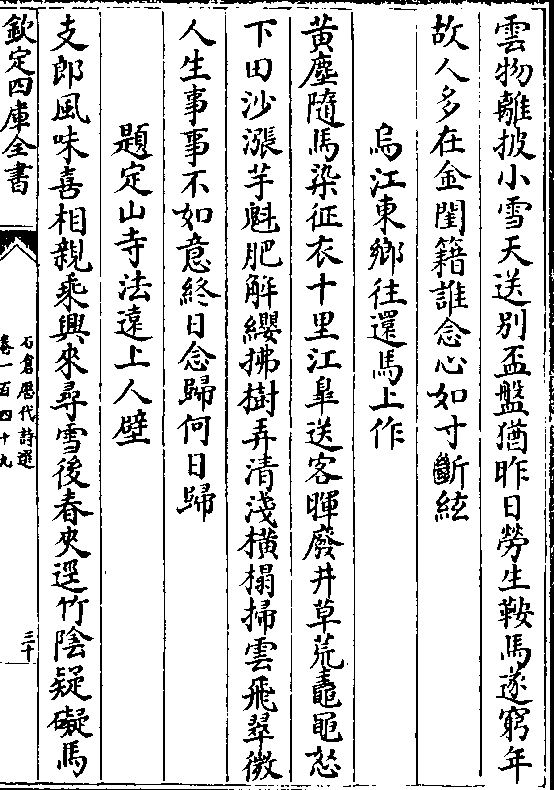 雲物離披小雪天送别盃盤猶昨日勞生鞍馬遂窮年
故人多在金閨籍誰念心如寸斷絃
烏江東鄉往還馬上作
黄塵隨馬染征衣十里江臯送客暉廢井草荒鼃黽怒
下田沙漲芋魁肥解纓拂樹弄清淺横榻掃雲飛翠微
人生事事不如意終日念歸何日歸
題定山寺法遠上人壁
支郎風味喜相親乘興來尋雪後春夾逕竹陰疑礙馬
欽定四庫全書
石倉歷代詩選
卷一百四十九
三十